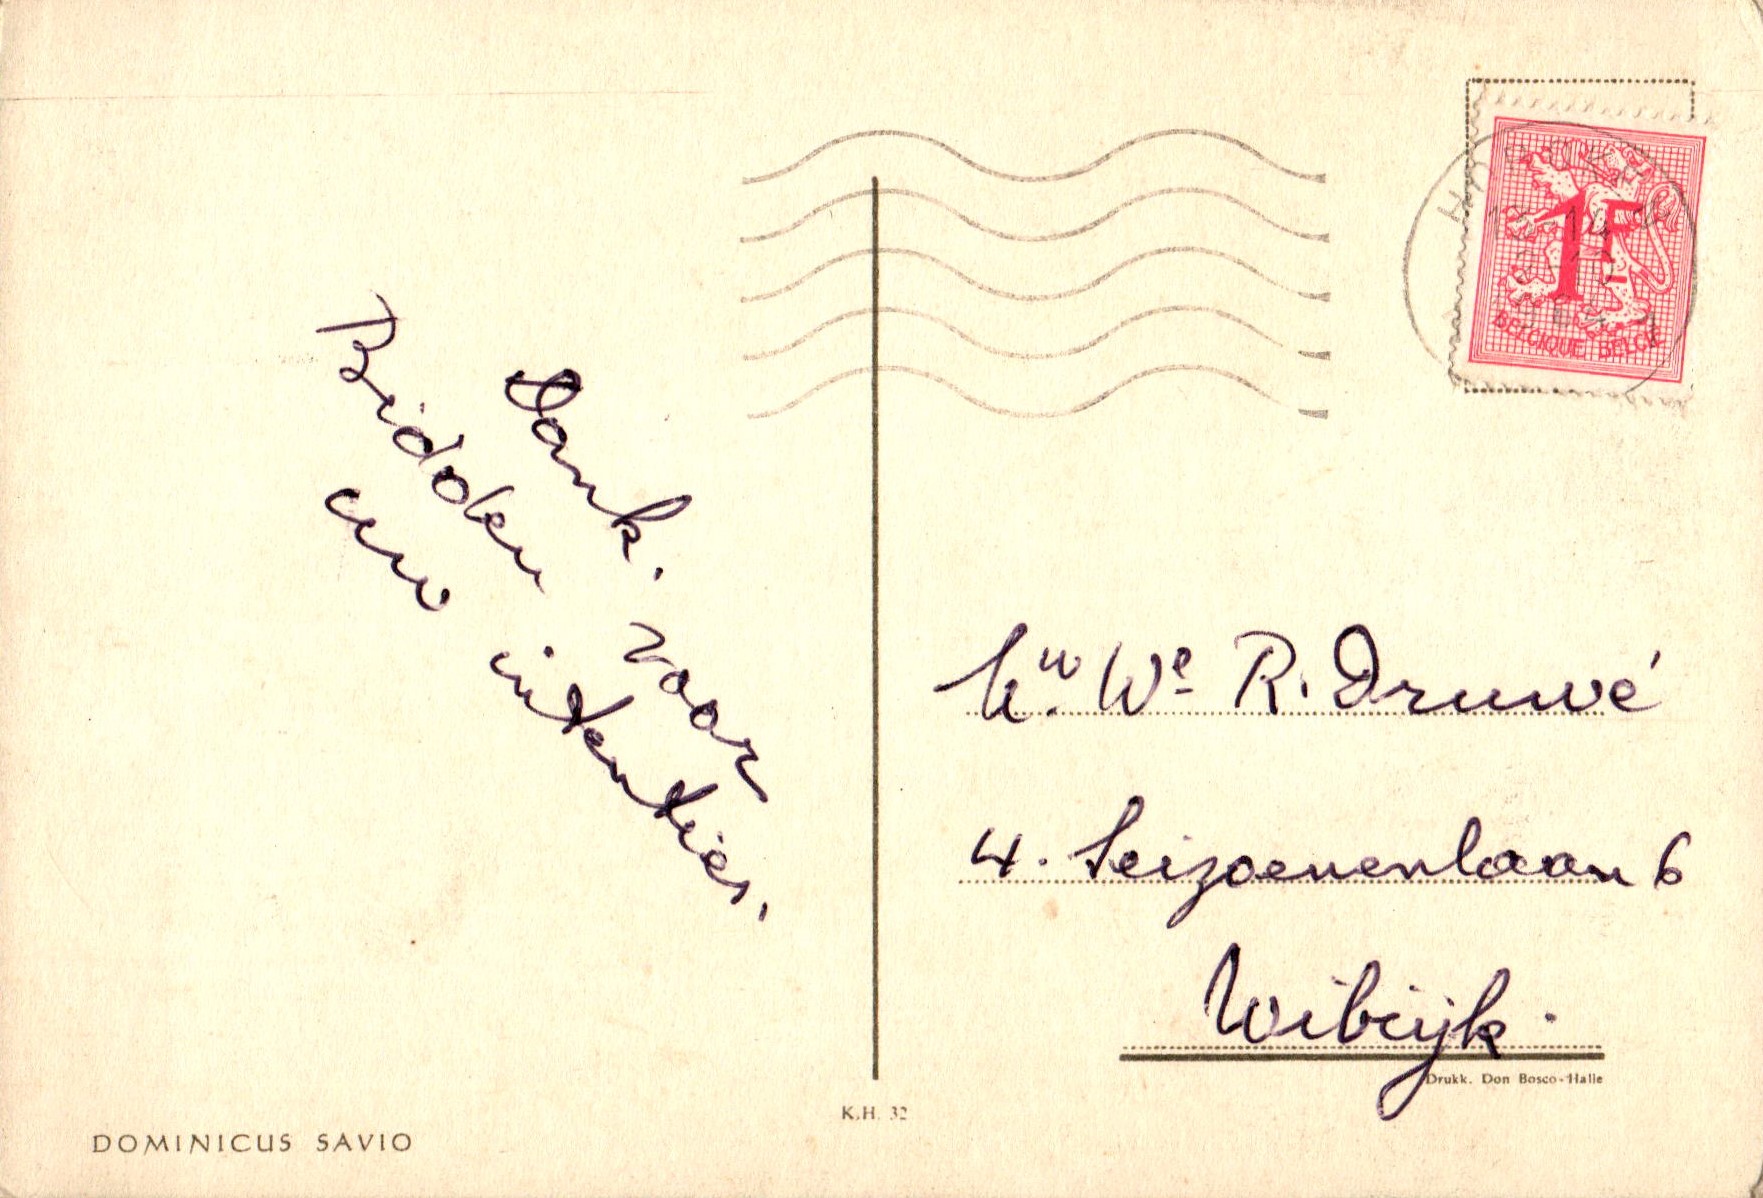 Dank.
Bidden voor
uw intenties.
Mw. We R. Druwé
4. Seizoenenlaan 6
Wibrijk.
Drukk. Don Bosco-Halle
K.H. 32
DOMINICUS SAVIO
1F
BELGIQUE BELGIË